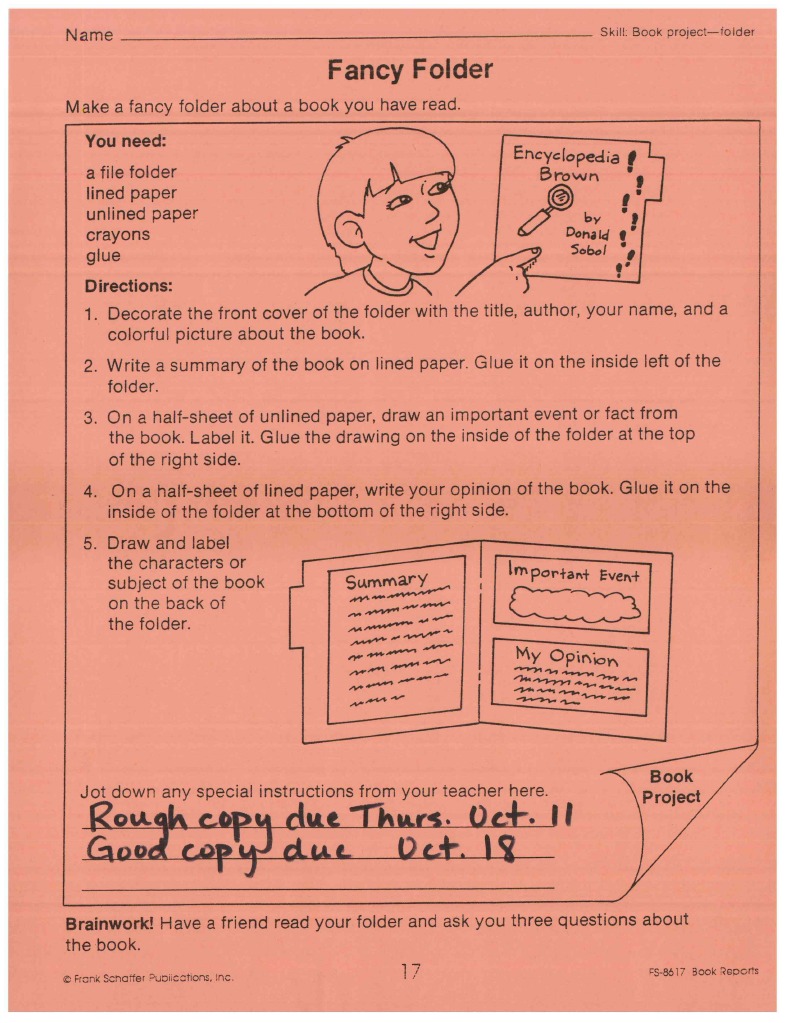 Name
Skill: Book project—folder
Fancy Folder
Make a fancy folder about a book you have read.
You need:
a file folder
lined paper
unlined paper
crayons
glue
Encyclopedia
Brown
by
Donald
Sobol
Directions:
1. Decorate the front cover of the folder with the title, author, your name, and a
colorful picture about the book.
2. Write a summary of the book on lined paper. Glue it on the inside left of the
folder.
3. On a half-sheet of unlined paper, draw an important event or fact from
the book. Label it. Glue the drawing on the inside of the folder at the top
of the right side.
4. On a half-sheet of lined paper, write your opinion of the book. Glue it on the
inside of the folder at the bottom of the right side.
5. Draw and label
the characters or
subject of the book
on the back of
the folder.
Summary
Important Event
My Opinion
Jot down any special instructions from your teacher here.
Rough copy due Thurs. Oct. 11
Good copy due Oct. 18
Book
Project
Brainwork! Have a friend read your folder and ask you three questions about
the book.
© Frank Schaffer Publications, Inc.
17
FS-8617 Book Reports